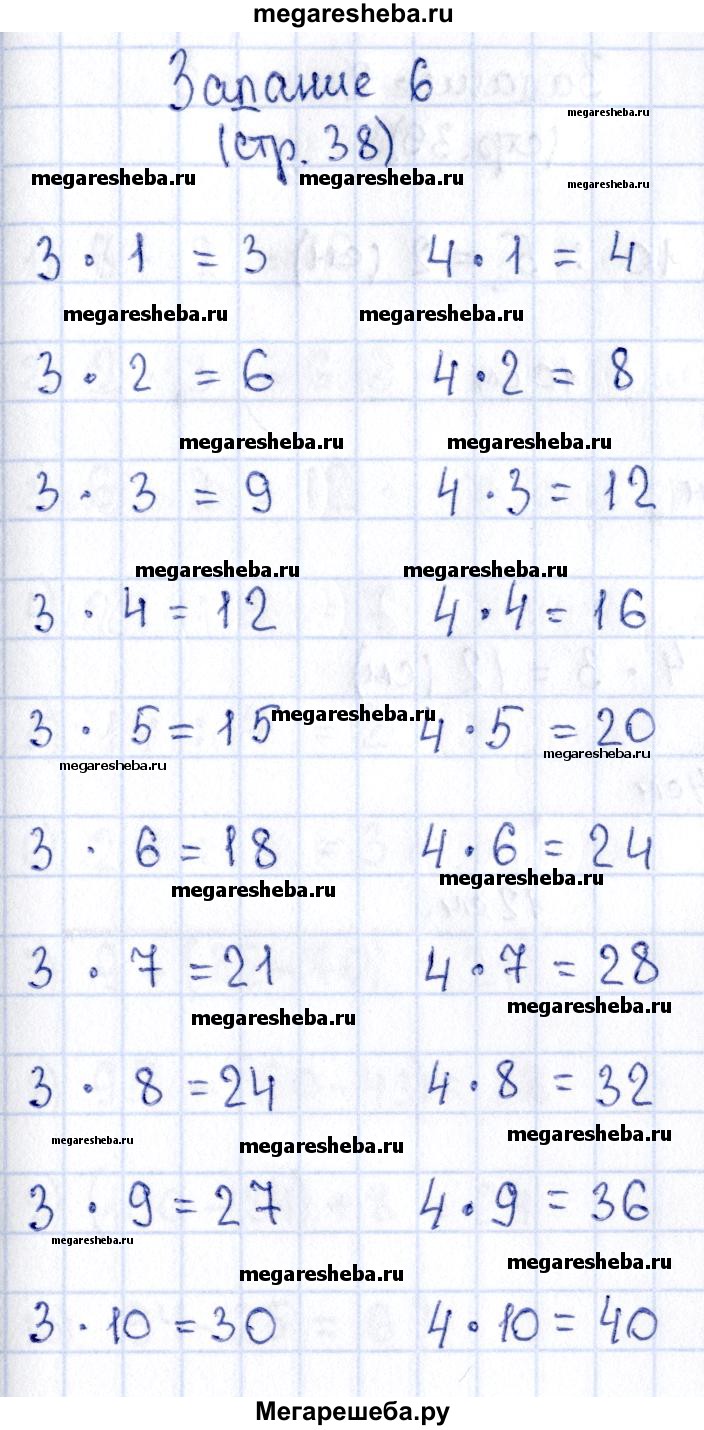 megaresheba.ru
Задание 6
megaresheba.ru
(стр. 38)
megaresheba.ru megaresheba.ru megaresheba.ru
3 · 1 = 3 4 · 1 = 4
megaresheba.ru megaresheba.ru
3 · 2 = 6 4 · 2 = 8
megaresheba.ru megaresheba.ru
3 · 3 = 9 4 · 3 = 12
megaresheba.ru megaresheba.ru
3 · 4 = 12 4 · 4 = 16
megaresheba.ru
3 · 5 = 15 4 · 5 = 20
megaresheba.ru megaresheba.ru
3 · 6 = 18 4 · 6 = 24
megaresheba.ru megaresheba.ru
3 · 7 = 21 4 · 7 = 28
megaresheba.ru megaresheba.ru
3 · 8 = 24 4 · 8 = 32
megaresheba.ru megaresheba.ru megaresheba.ru
3 · 9 = 27 4 · 9 = 36
megaresheba.ru megaresheba.ru megaresheba.ru
3 · 10 = 30 4 · 10 = 40
Мегарешеба.ру